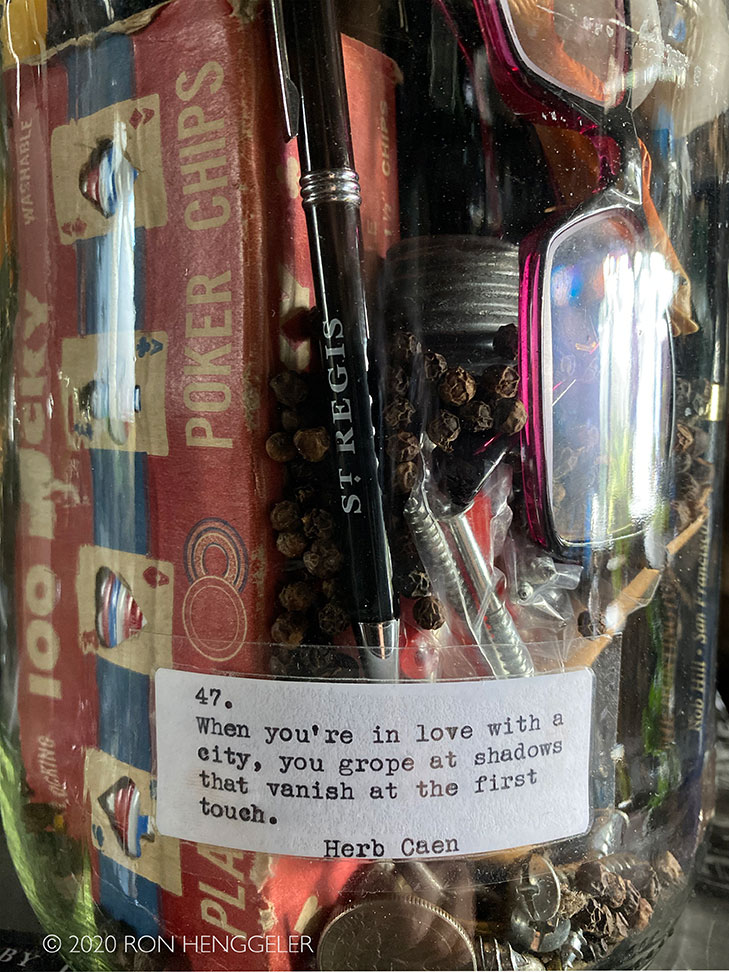 WASHABLE
POKER CHIPS
CHIPS
100
PLA
ST REGIS
47.
When you're in love with a
city, you grope at shadows
that vanish at the first
touch.
Herb Caen
© 2020 RON HENGGELER
BY